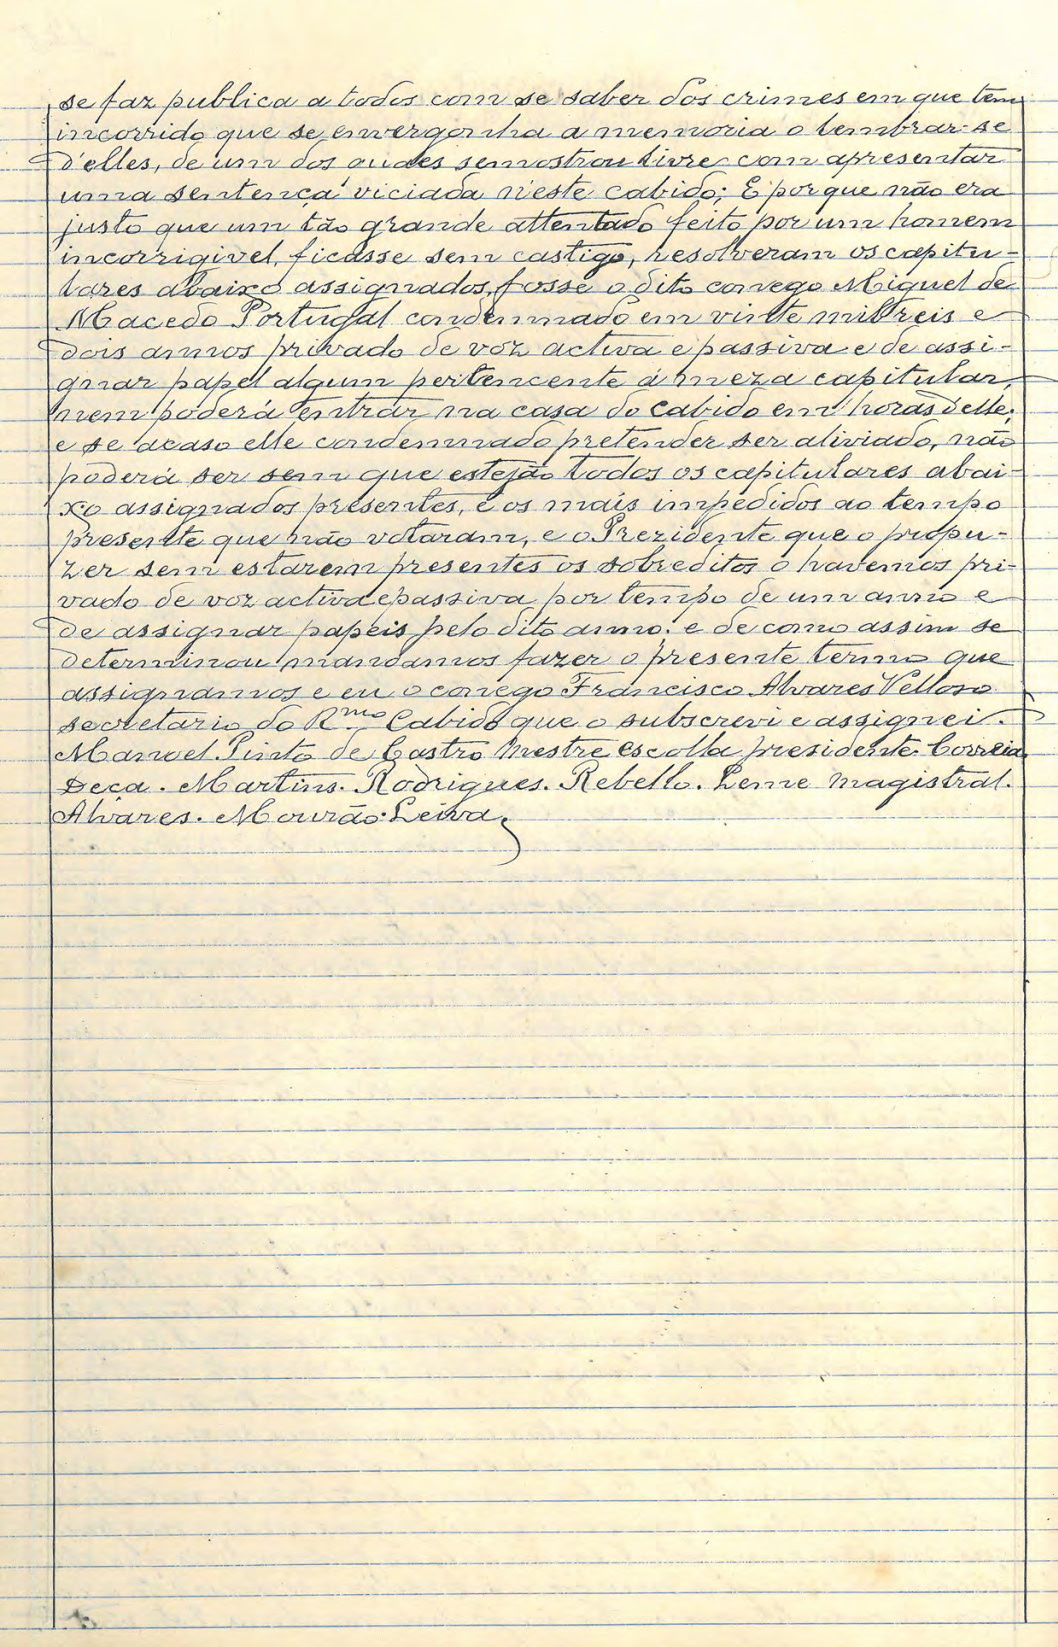 se faz publica a todos com se saber dos crimes em que tem
incorrido que se envergonha a memoria o lembrar-se
d'elles, de um dos quaes semostrou livre com apresentar
uma sentença viciada n'este cabido; E porque não era
justo que um tão grande attentado feito por um homem
incorrigivel, ficasse sem castigo, resolveram os capitu-
lares abaixo assignados, fosse o dito conego Miguel de
Macedo Portugal condemnado em vinte mil reis e
dois annos privado de voz activa e passiva e de assi-
gnar papel algum pertencente á meza capitular,
nem poderá entrar na casa do cabido em horas d'elle;
e se acaso elle condemnado pretender ser aliviado, não
poderá ser sem que estejão todos os capitulares abai-
xo assignados presentes, e os mais impedidos ao tempo
presente que não votaram, e o Prezidente que o propu-
zer sem estarem presentes os sobreditos o havemos pri-
vado de voz activa e passiva por tempo de um anno e
de assignar papeis pelo dito anno; e de como assim se
determinou mandamos fazer o presente termo que
assignamos e eu o conego Francisco Alvares Velloso
secretario do Rmo Cabido que o subscrevi e assignei.
Manoel Pinto de Castro Mestre escolla presidente. Correia
Deça. Martins. Rodrigues. Rebello. Leme Magistral.
Alvares. Mourão. Leiva.